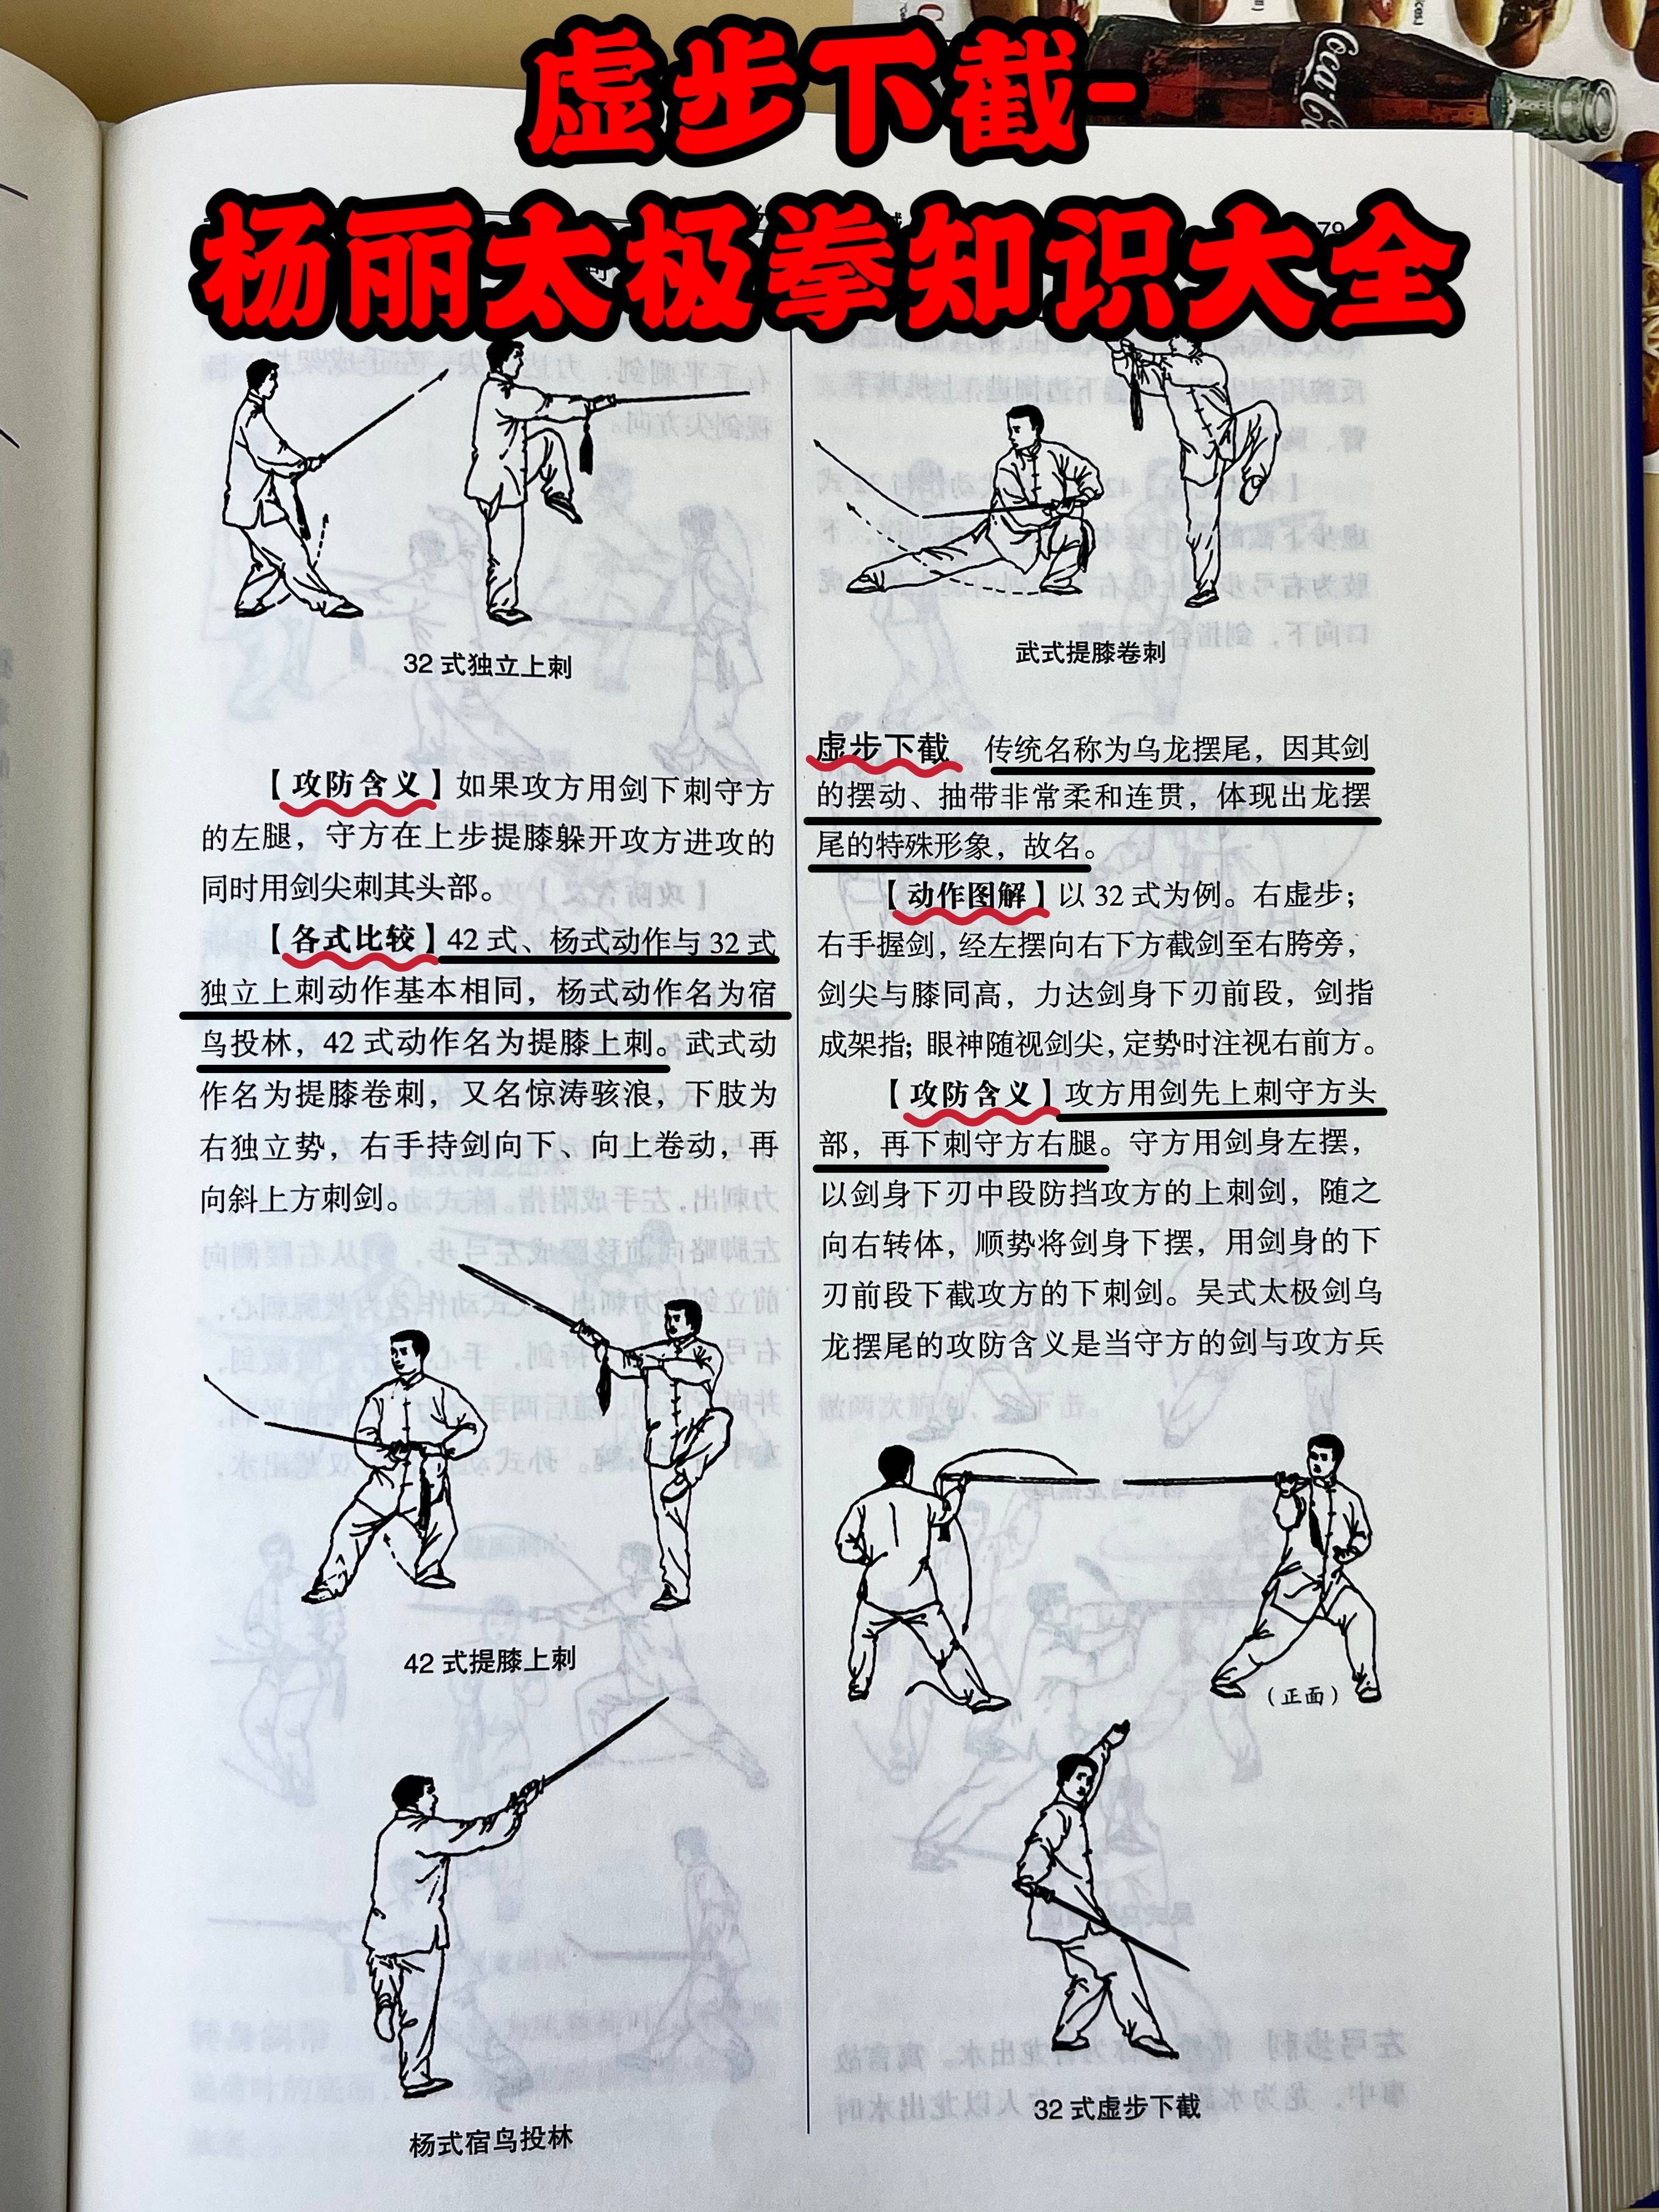 虚步下截-
杨丽太极拳知识大全
Coca-Co
79
32 式独立上刺
【攻防含义】如果攻方用剑下刺守方
的左腿，守方在上步提膝躲开攻方进攻的
同时用剑尖刺其头部。
【各式比较】42 式、杨式动作与 32 式
独立上刺动作基本相同，杨式动作名为宿
鸟投林，42 式动作名为提膝上刺。武式动
作名为提膝卷刺，又名惊涛骇浪，下肢为
右独立势，右手持剑向下、向上卷动，再
向斜上方刺剑。
42 式提膝上刺
杨式宿鸟投林
武式提膝卷刺
虚步下截 传统名称为乌龙摆尾，因其剑
的摆动、抽带非常柔和连贯，体现出龙摆
尾的特殊形象，故名。
【动作图解】以 32 式为例。右虚步；
右手握剑，经左摆向右下方截剑至右胯旁，
剑尖与膝同高，力达剑身下刃前段，剑指
成架指；眼神随视剑尖，定势时注视右前方。
【攻防含义】攻方用剑先上刺守方头
部，再下刺守方右腿。守方用剑身左摆，
以剑身下刃中段防挡攻方的上刺剑，随之
向右转体，顺势将剑身下摆，用剑身的下
刃前段下截攻方的下刺剑。吴式太极剑乌
龙摆尾的攻防含义是当守方的剑与攻方兵
（正面）
32 式虚步下截